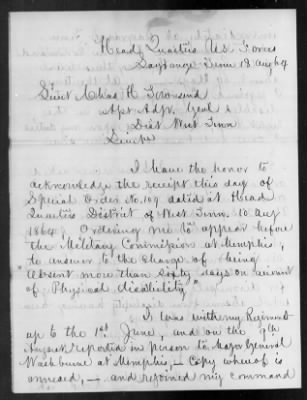 Head Quarters U.S. Forces
Lagrange Tenn 13 Aug 64
Lieut Chas H. Townsend
Asst Adjt. Genl &
Dist West Tenn
I have the honor to
acknowledge the receipt this day of
Special Order No. 109 dated at Head
Quarters District of West Tenn. 10 Aug
1864. Ordering me to appear before
the Military Commission at Memphis,
to answer to the Charge of "being
absent more than sixty days on account
of Physical disability."
I was with my Regiment
up to the 1st June, and on the 9th
August reported in person to Major General
Washburne at Memphis, — Copy whereof is
annexed, — and rejoined my command